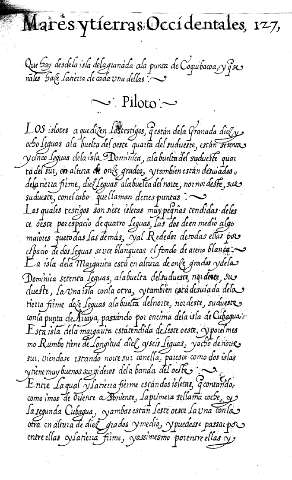 Mares y tierras Occidentales, 127,
Que hay desde la isla dela granada ala punta de Copubacoa, y que
señales haze la tierra de cada una dellas:
Piloto
LOS isleos a que dizen los testigos, que están dela Granada diez y
ocho leguas ala buelta del oeste quarta del sudueste, están setenta
y cinco leguas dela isla Dominica, ala buelta del sudueste quar
ta del sur, en altura de onze grados, y tambien están desuiadas
dela tierra firme, diez leguas ala buelta del norte, nornordeste, sur
sudueste, con el cabo que llaman de tres puntas:
Los quales testigos son siete isleos muy pequeños tendidas de les
te oeste por espacio de quatro leguas, las dos de en medio algo
maiores que todas las demás, y al Rededor de todas ellas por
espacio de dos leguas se vee blanquear el fondo de arena blanca:
La isla dela Margarita está en altura de onze grados y dela
Dominica setenta leguas, ala buelta del sudueste, nordeste, su
dueste, la una isla con la otra, y tambien está desuiada dela
tierra firme diez leguas ala buelta del norte, nordeste, sudueste
con la punta de Araya, passando por encima dela isla de Cubagua:
Esta isla dela margarita está tendida de leste oeste, y por el mes
mo Rumbo tiene de longitud diez y seis leguas, y ocho de norte
sur, viendose estando norte sur con ella, parescen como dos islas
y tiene muy buenos surgideros dela banda del oeste:
Entre la qual y la tierra firme están dos isletas, que contando
como imos de oriente a poniente, la primera se llama coche, y
la segunda Cubagua, y ambas están leste oeste la una con la
otra en altura de diez grados y medio, y puedesse passar por
entre ellas y la tierra firme, y assimesmo por entre ellas y